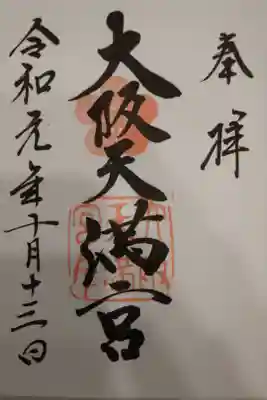 奉拝
大阪天満宮
令和元年十月十三日